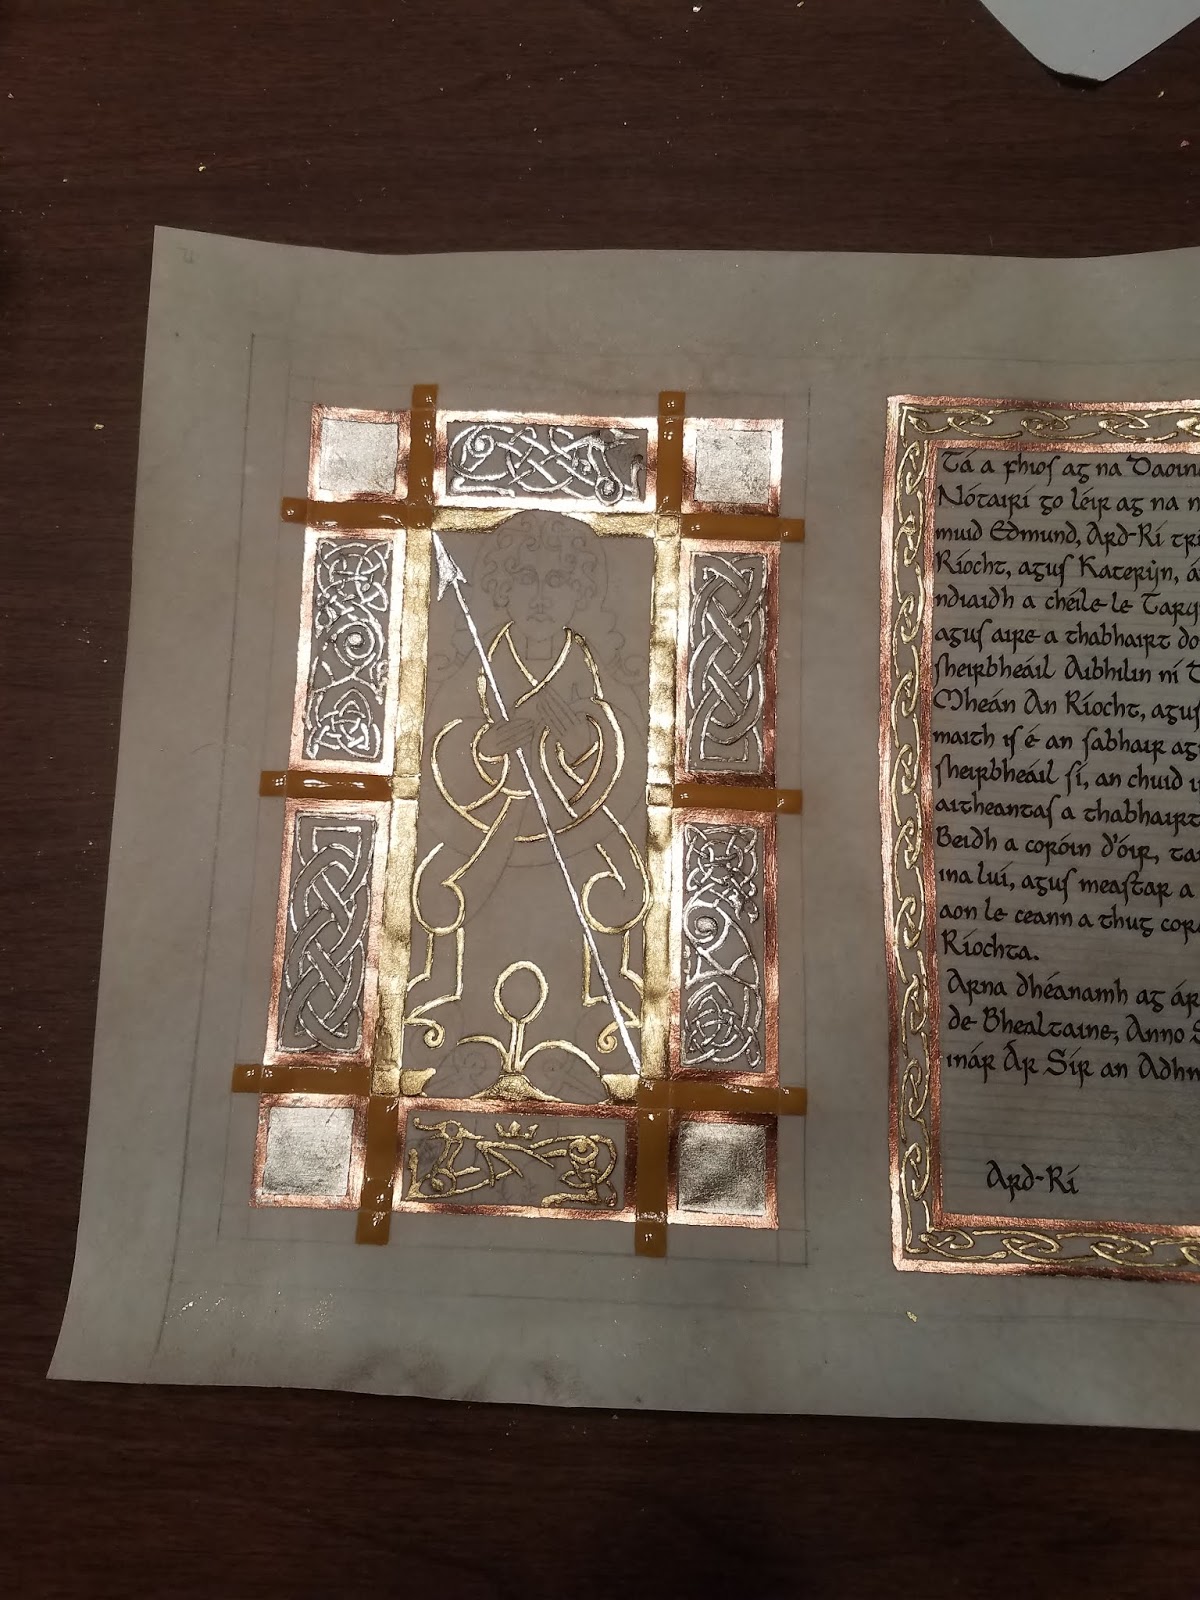 Tá a fhios ag na Daoine
Nótairí go léir ag na n
muid Edmund, Ard-Rí trí
Ríocht, agus Katerijn, á
ndiaidh a chéile le Tary
agus aire a thabhairt do
sheirbheáil Aibhilín ní T
Mheán An Ríocht, agus
maith is é an fabhair ag
sheirbheáil sí, an chuid i
aitheantas a thabhairt
Beidh a coróin d'óir, ta
ina luí, agus meastar a
aon le ceann a thug coró
Ríochta.
Arna dhéanamh ag ár
de Bhealtaine, Anno S
inár Ár Sír an Adhm
Ard-Rí